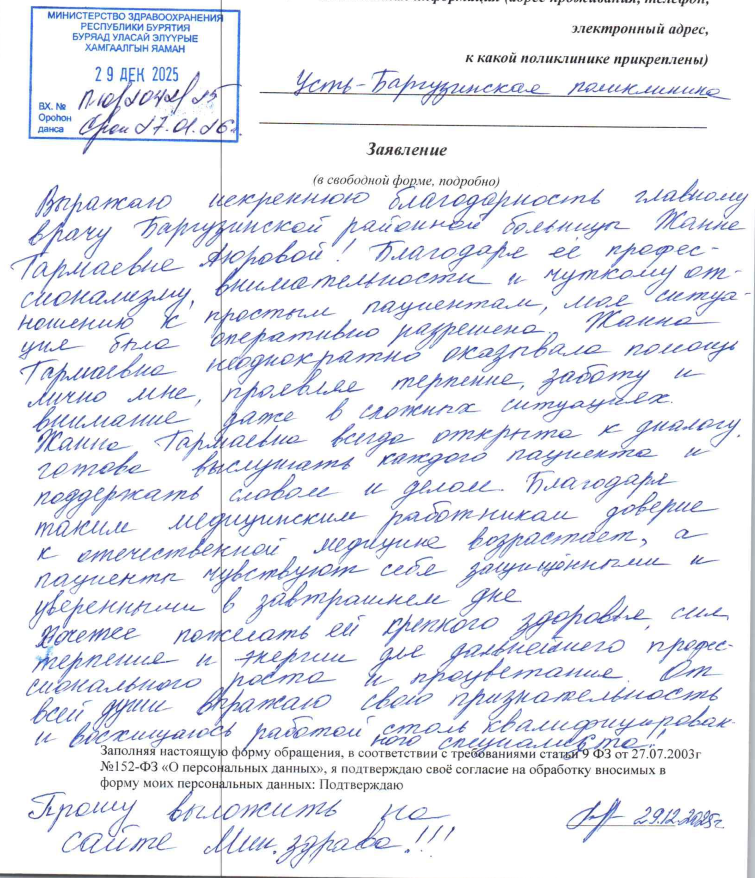 электронный адрес,
к какой поликлинике прикреплены)
МИНИСТЕРСТВО ЗДРАВООХРАНЕНИЯ
РЕСПУБЛИКИ БУРЯТИЯ
БУРЯАД УЛАСАЙ ЭЛУУРЫЕ
ХАМГААЛГЫН ЯАМАН
29 ДЕК 2025
ВХ. №
Ороһон
данса
Срок 27.01.26г.
Усть-Баргузинская поликлиника
Заявление
(в свободной форме, подробно)
Выражаю искреннюю благодарность главному
врачу Баргузинской районной больницы Жанне
Тармаевне Аюровой! Благодаря её профес-
сионализму, внимательности и чуткому от-
ношению к простым пациентам, моя ситуа-
ция была оперативно разрешена. Жанна
Тармаевна неоднократно оказывала помощь
лично мне, проявляя терпение, заботу и
внимание даже в сложных ситуациях.
Жанна Тармаевна всегда открыта к диалогу,
готова выслушать каждого пациента и
поддержать словом и делом. Благодаря
таким медицинским работникам доверие
к отечественной медицине возрастает, а
пациенты чувствуют себя защищёнными и
уверенными в завтрашнем дне
пожелать ей крепкого здоровья, сил
терпения и энергии для дальнейшего профес-
сионального роста и процветания. От
всей души выражаю свою признательность
и восхищаюсь работой столь квалифицирован-
ного специалиста!
Заполняя настоящую форму обращения, в соответствии с требованиями статьи 9 ФЗ от 27.07.2003г
№152-ФЗ «О персональных данных», я подтверждаю своё согласие на обработку вносимых в
форму моих персональных данных: Подтверждаю
Прошу выложить на
сайте Мин. здрава!!!
29.12.2025г.